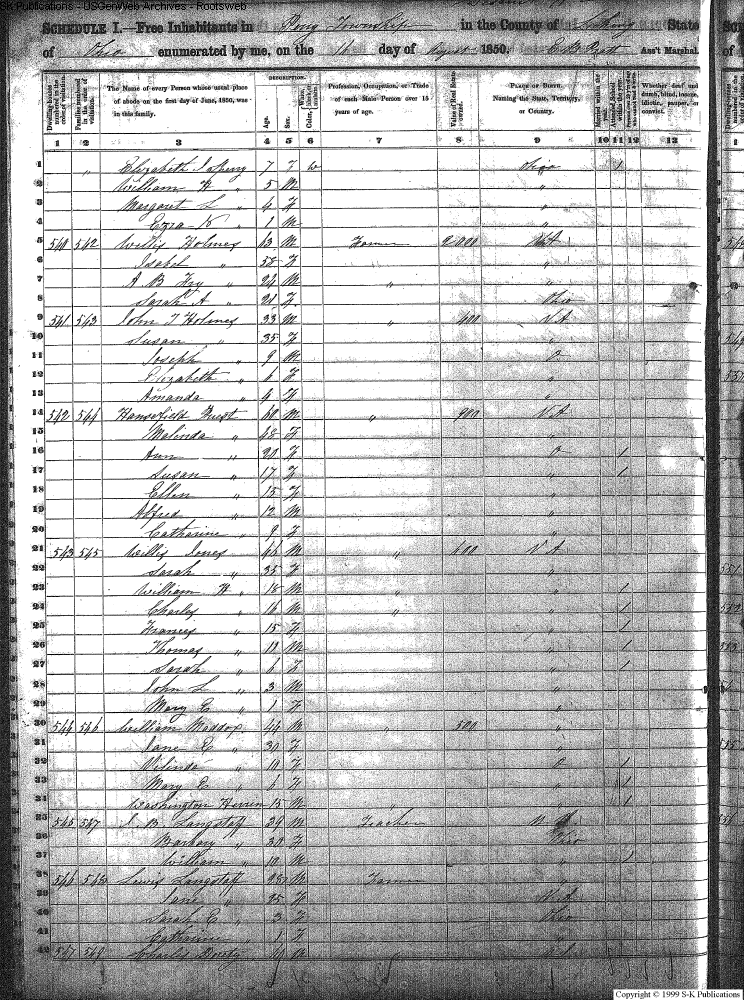 S-K Publications - USGenWeb Archives - Rootsweb
SCHEDULE I.—Free Inhabitants in Perry Township in the County of Licking State
of Ohio enumerated by me, on the 16 day of August 1850. Ass't Marshal.
DESCRIPTION.
Dwelling-houses numbered in the order of visitation.
Families numbered in the order of visitation.
The Name of every Person whose usual place of abode on the first day of June, 1850, was in this family.
Age.
Sex.
Color,
Profession, Occupation, or Trade of each Male Person over 15 years of age.
Value of Real Estate owned.
PLACE OF BIRTH.
Naming the State, Territory, or Country.
Married within the year.
Attended School within the year.
Whether deaf and dumb, blind, insane, idiotic, pauper, or convict.
1 2 3 4 5 6 7 8 9 10 11 12 13
1 " Elizabeth 7 F W Ohio 1
2 William " 5 M "
3 Margaret L " 4 F "
4 Ezra K " 1 M "
5 540 542 Willis Holmes 63 M Farmer 2000 VA
6 Isabel " 58 F "
7 A B Fry 24 M " "
8 Sarah A " 21 F Ohio
9 541 543 John T Holmes 33 M " 400 VA
10 Susan " 35 F "
11 Joseph " 9 M O
12 Elizabeth " 6 F "
13 Amanda " 4 F "
14 542 544 60 M " 900 VA
15 Malinda " 48 F "
16 Ann " 20 F O 1
17 Susan " 17 F " 1
18 Ellen " 15 F "
19 Alfred " 12 M "
20 Catharine " 9 F "
21 543 545 Willis Jones 46 M " 600 VA
22 Sarah " 35 F "
23 William H " 18 M " " 1
24 Charles " 16 M " " 1
25 Frances " 15 F " 1
26 Thomas " 11 M " 1
27 Sarah " 6 F " 1
28 John L " 3 M "
29 Mary E " 1 F "
30 544 546 William Maddox 44 M " 500 "
31 Jane E " 30 F "
32 " 10 F O 1
33 Mary E " 6 F " 1
34 Washington Herren 15 M " " 1
35 545 547 J B Langstaff 29 M Teacher
36 Barbary " 30 F Ohio
37 William " 10 M " 1
38 546 548 Lewis Langstaff 28 M Farmer "
39 Jane " 25 F VA
40 Sarah E " 3 F Ohio
41 Catharine " 1 F "
42 547 549 Charles M
Copyright © 1999 S-K Publications